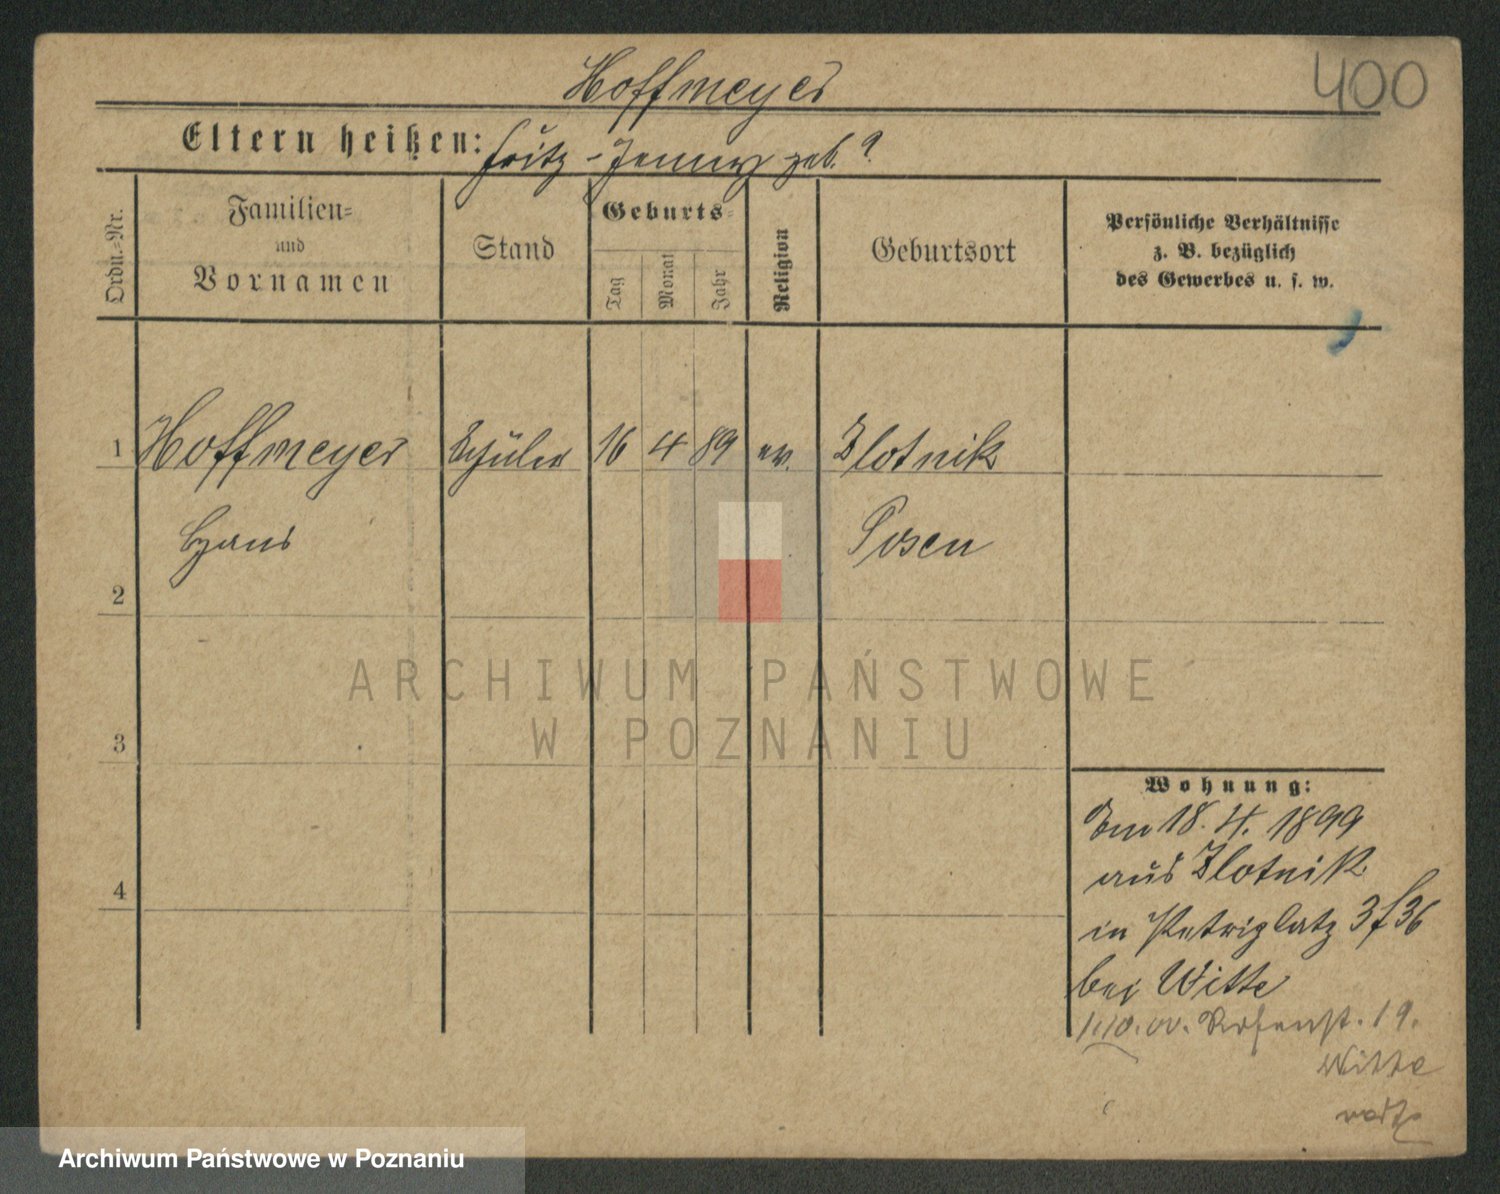 Hoffmeyer
400
Eltern heißen: Fritz - Jenny geb. ?
Ordn.-Nr.
Familien-
und
Vornamen
Stand
Geburts-
Tag
Monat
Jahr
Religion
Geburtsort
Persönliche Verhältnisse
z. B. bezüglich
des Gewerbes u. s. w.
1 Hoffmeyer Schüler 16 4 89 ev. Zlotnik
Hans Posen
2
3
4
ARCHIWUM PAŃSTWOWE
W POZNANIU
Wohnung:
18. 4. 1899
aus Zlotnik
in Petriplatz 3 f 36
bei Witte
1.10.00. 19.
Witte
Archiwum Państwowe w Poznaniu